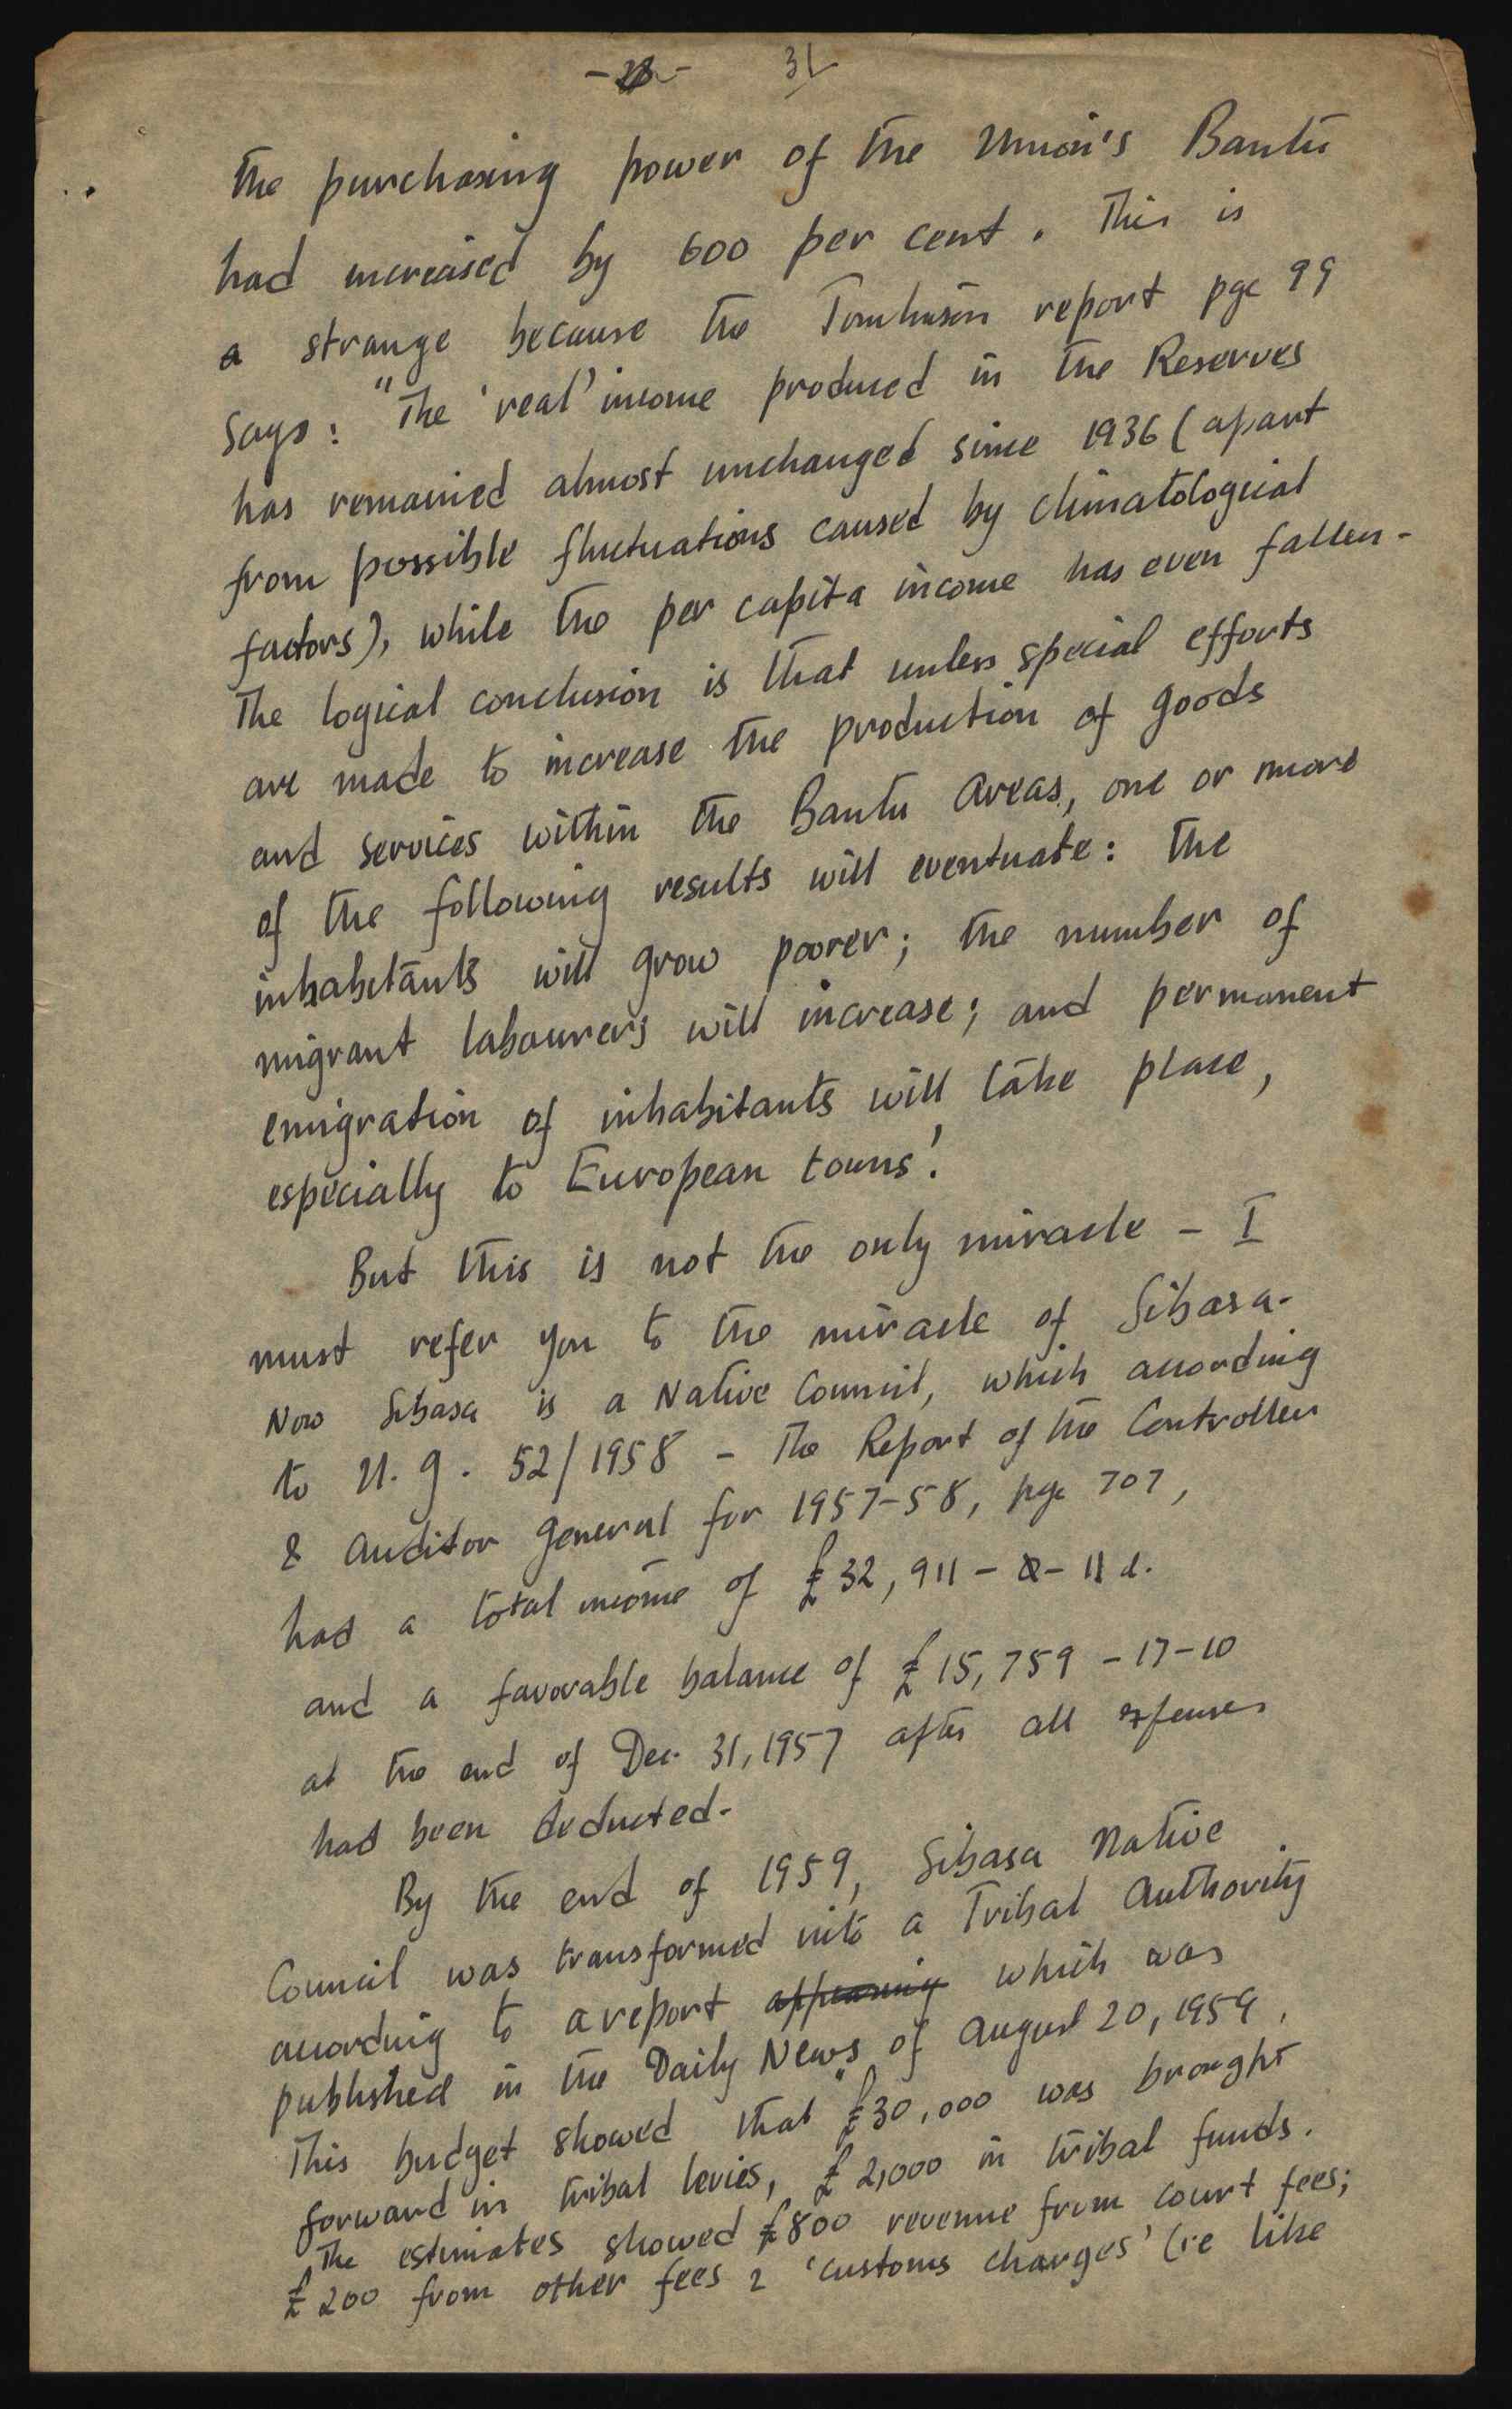 31
the purchasing power of the Union's Bantu
had increased by 600 per cent. This is
a strange because the Tomlinson report pge 99
says: "The 'real' income produced in the Reserves
has remained almost unchanged since 1936 (apart
from possible fluctuations caused by climatological
factors), while the per capita income has even fallen.
The logical conclusion is that unless special efforts
are made to increase the production of goods
and services within the Bantu Areas, one or more
of the following results will eventuate: the
inhabitants will grow poorer; the number of
migrant labourers will increase; and permanent
emigration of inhabitants will take place,
especially to European towns'.
But this is not the only miracle - I
must refer you to the miracle of Sibasa.
Now Sibasa is a Native Council, which according
to U.G. 52/1958 - The Report of the Controller
& Auditor General for 1957-58, pge 707,
had a total income of £32,911 - 2 - 11 d.
and a favorable balance of £15,759 - 17 - 10
at the end of Dec. 31, 1957 after all expenses
had been deducted.
By the end of 1959, Sibasa Native
Council was transformed into a Tribal Authority
according to a report appearing which was
published in the Daily News of August 20, 1959.
This budget showed that "£30,000 was brought
forward in tribal levies, £2,000 in tribal funds.
The estimates showed £800 revenue from court fees;
£200 from other fees & 'customs charges' (ie like